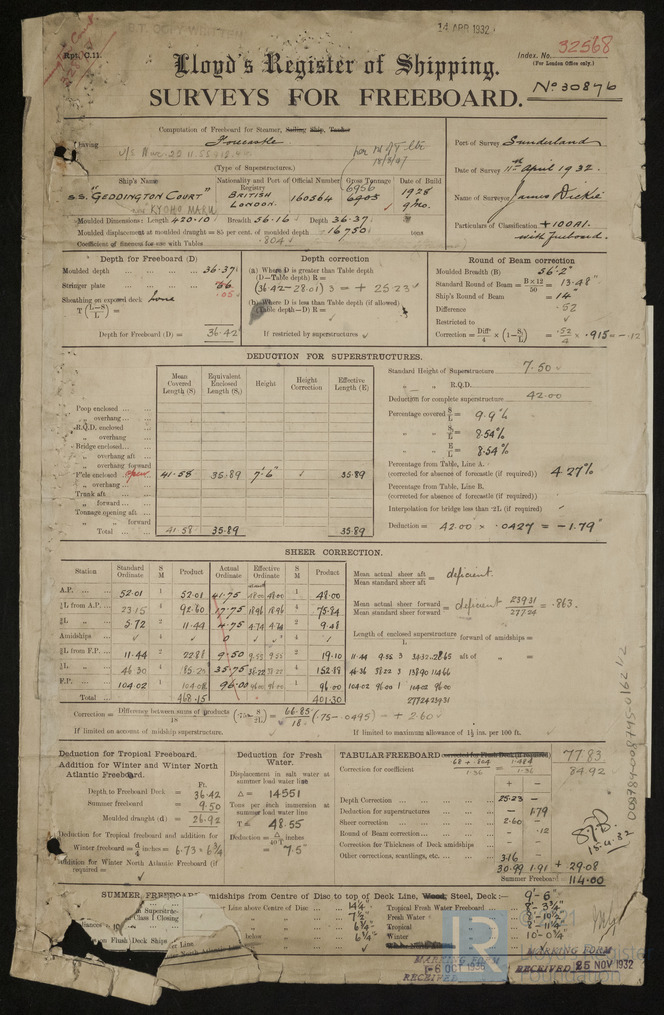 B.T. COPY WRITTEN
14 APR 1932
Rpt. C.11.
Index. No. 32568
(For London Office only.)
Lloyd's Register of Shipping.
No 30876
SURVEYS FOR FREEBOARD.
Computation of Freeboard for Steamer, Sailing Ship, Tanker
Having Forecastle
(Type of Superstructures.)
Port of Survey Sunderland
Date of Survey 11th April 1932.
Name of Surveyor James Dickie
Particulars of Classification +100A1.
with freeboard.
Ship's Name
Nationality and Port of Registry
Official Number
Gross Tonnage
Date of Build
S.S. "GEDDINGTON COURT"
KYOHO MARU
BRITISH
LONDON.
160564
6956
6903
1928
9 mo.
Moulded Dimensions: Length 420.10 Breadth 56.16 Depth 36.37
Moulded displacement at moulded draught = 85 per cent. of moulded depth 16750 tons
Coefficient of fineness for use with Tables .804
Depth for Freeboard (D)
Moulded depth 36.37
Stringer plate .66
.05
Sheathing on exposed deck none
T (L-S/L) =
Depth for Freeboard (D) = 36.42
Depth correction
(a) Where D is greater than Table depth
(D-Table depth) R =
(36.42 - 28.01) 3 = + 25.23
(b) Where D is less than Table depth (if allowed)
(Table depth-D) R =
If restricted by superstructures
Round of Beam correction
Moulded Breadth (B) 56'.2"
Standard Round of Beam = B×12/50 = 13.48"
Ship's Round of Beam = 14
Difference .52
Restricted to
Correction = Diff/4 × (1-S₁/L) = .52/4 × .915 = -.12
DEDUCTION FOR SUPERSTRUCTURES.
Mean Covered Length (S)
Equivalent Enclosed Length (S₁)
Height
Height Correction
Effective Length (E)
Poop enclosed
" overhang
R.Q.D. enclosed
" overhang
Bridge enclosed
" overhang aft
" overhang forward
F'cle enclosed open 41.58 35.89 7'.6" 35.89
" overhang
Trunk aft
" forward
Tonnage opening aft
" " forward
Total 41.58 35.89 35.89
Standard Height of Superstructure 7.50
" " R.Q.D.
Deduction for complete superstructure 42.00
Percentage covered S/L = 9.9%
" " S₁/L = 8.54%
" " E/L = 8.54%
Percentage from Table, Line A.
(corrected for absence of forecastle (if required)) 4.27%
Percentage from Table, Line B.
(corrected for absence of forecastle (if required))
Interpolation for bridge less than .2L (if required)
Deduction = 42.00 × .0427 = -1.79"
SHEER CORRECTION.
Station
Standard Ordinate
S M
Product
Actual Ordinate
Effective Ordinate
S M
Product
A.P. 52.01 1 52.01 41.75 48.00 48.00 1 48.00
⅙L from A.P. 23.15 4 92.60 17.75 18.96 18.96 4 75.84
⅓L " 5.72 2 11.44 4.75 4.74 4.74 2 9.48
Amidships 4 0 4
⅓L from F.P. 11.44 2 22.88 9.50 9.55 9.55 2 19.10
⅙L " 46.30 4 185.20 35.75 38.22 38.22 4 152.88
F.P. 104.02 1 104.02 96.00 96.00 96.00 1 96.00
Total 468.15 401.30
Mean actual sheer aft / Mean standard sheer aft = deficient.
Mean actual sheer forward / Mean standard sheer forward = deficient 2393.1/2772.4 = .863.
Length of enclosed superstructure / L forward of amidships =
" " aft of " =
11.44 9.55 3 34.32 28.65
46.30 38.22 3 138.90 114.66
104.02 96.00 1 104.02 96.00
277.24 239.31
Correction = Difference between sums of products / 18 (.75 - S/2L) = 66.85/18 (.75 - .0495) = + 2.60
If limited on account of midship superstructure.
If limited to maximum allowance of 1½ ins. per 100 ft.
Deduction for Tropical Freeboard.
Addition for Winter and Winter North Atlantic Freeboard.
Ft.
Depth to Freeboard Deck = 36.42
Summer freeboard = 9.50
Moulded draught (d) = 26.92
Deduction for Tropical freeboard and addition for
Winter freeboard = d/4 inches = 6.73 = 6¾
Addition for Winter North Atlantic Freeboard (if required) =
Deduction for Fresh Water.
Displacement in salt water at summer load water line
Δ = 14551
Tons per inch immersion at summer load water line
T = 48.55
Deduction = Δ/40T inches
= 7.5"
TABULAR FREEBOARD corrected for Flush Deck (if required) 77.83
Correction for coefficient .68 + .804 / 1.36 = 1.484 / 1.36 84.92
+ -
Depth Correction 25.23 -
Deduction for superstructures - 1.79
Sheer correction 2.60 -
Round of Beam correction - .12
Correction for Thickness of Deck amidships
Other corrections, scantlings, etc. 3.16 -
30.99 1.91 + 29.08
Summer Freeboard = 114.00
15.4.32
SUMMER FREEBOARD amidships from Centre of Disc to top of Deck Line, Wood, Steel, Deck:- 9'- 6"
Line above Centre of Disc 14¼" Tropical Fresh Water Freeboard 8'- 3¾"
" " 7½" Fresh Water " 8'- 10½"
" " 6¾" Tropical " 8'- 11¼"
below " 6¾" Winter " 10'- 0¾"
MARKING FORM
RECEIVED 25 NOV 1932
MARKING FORM
6 OCT 1936
RECEIVED
008784-008795-0162 1/2